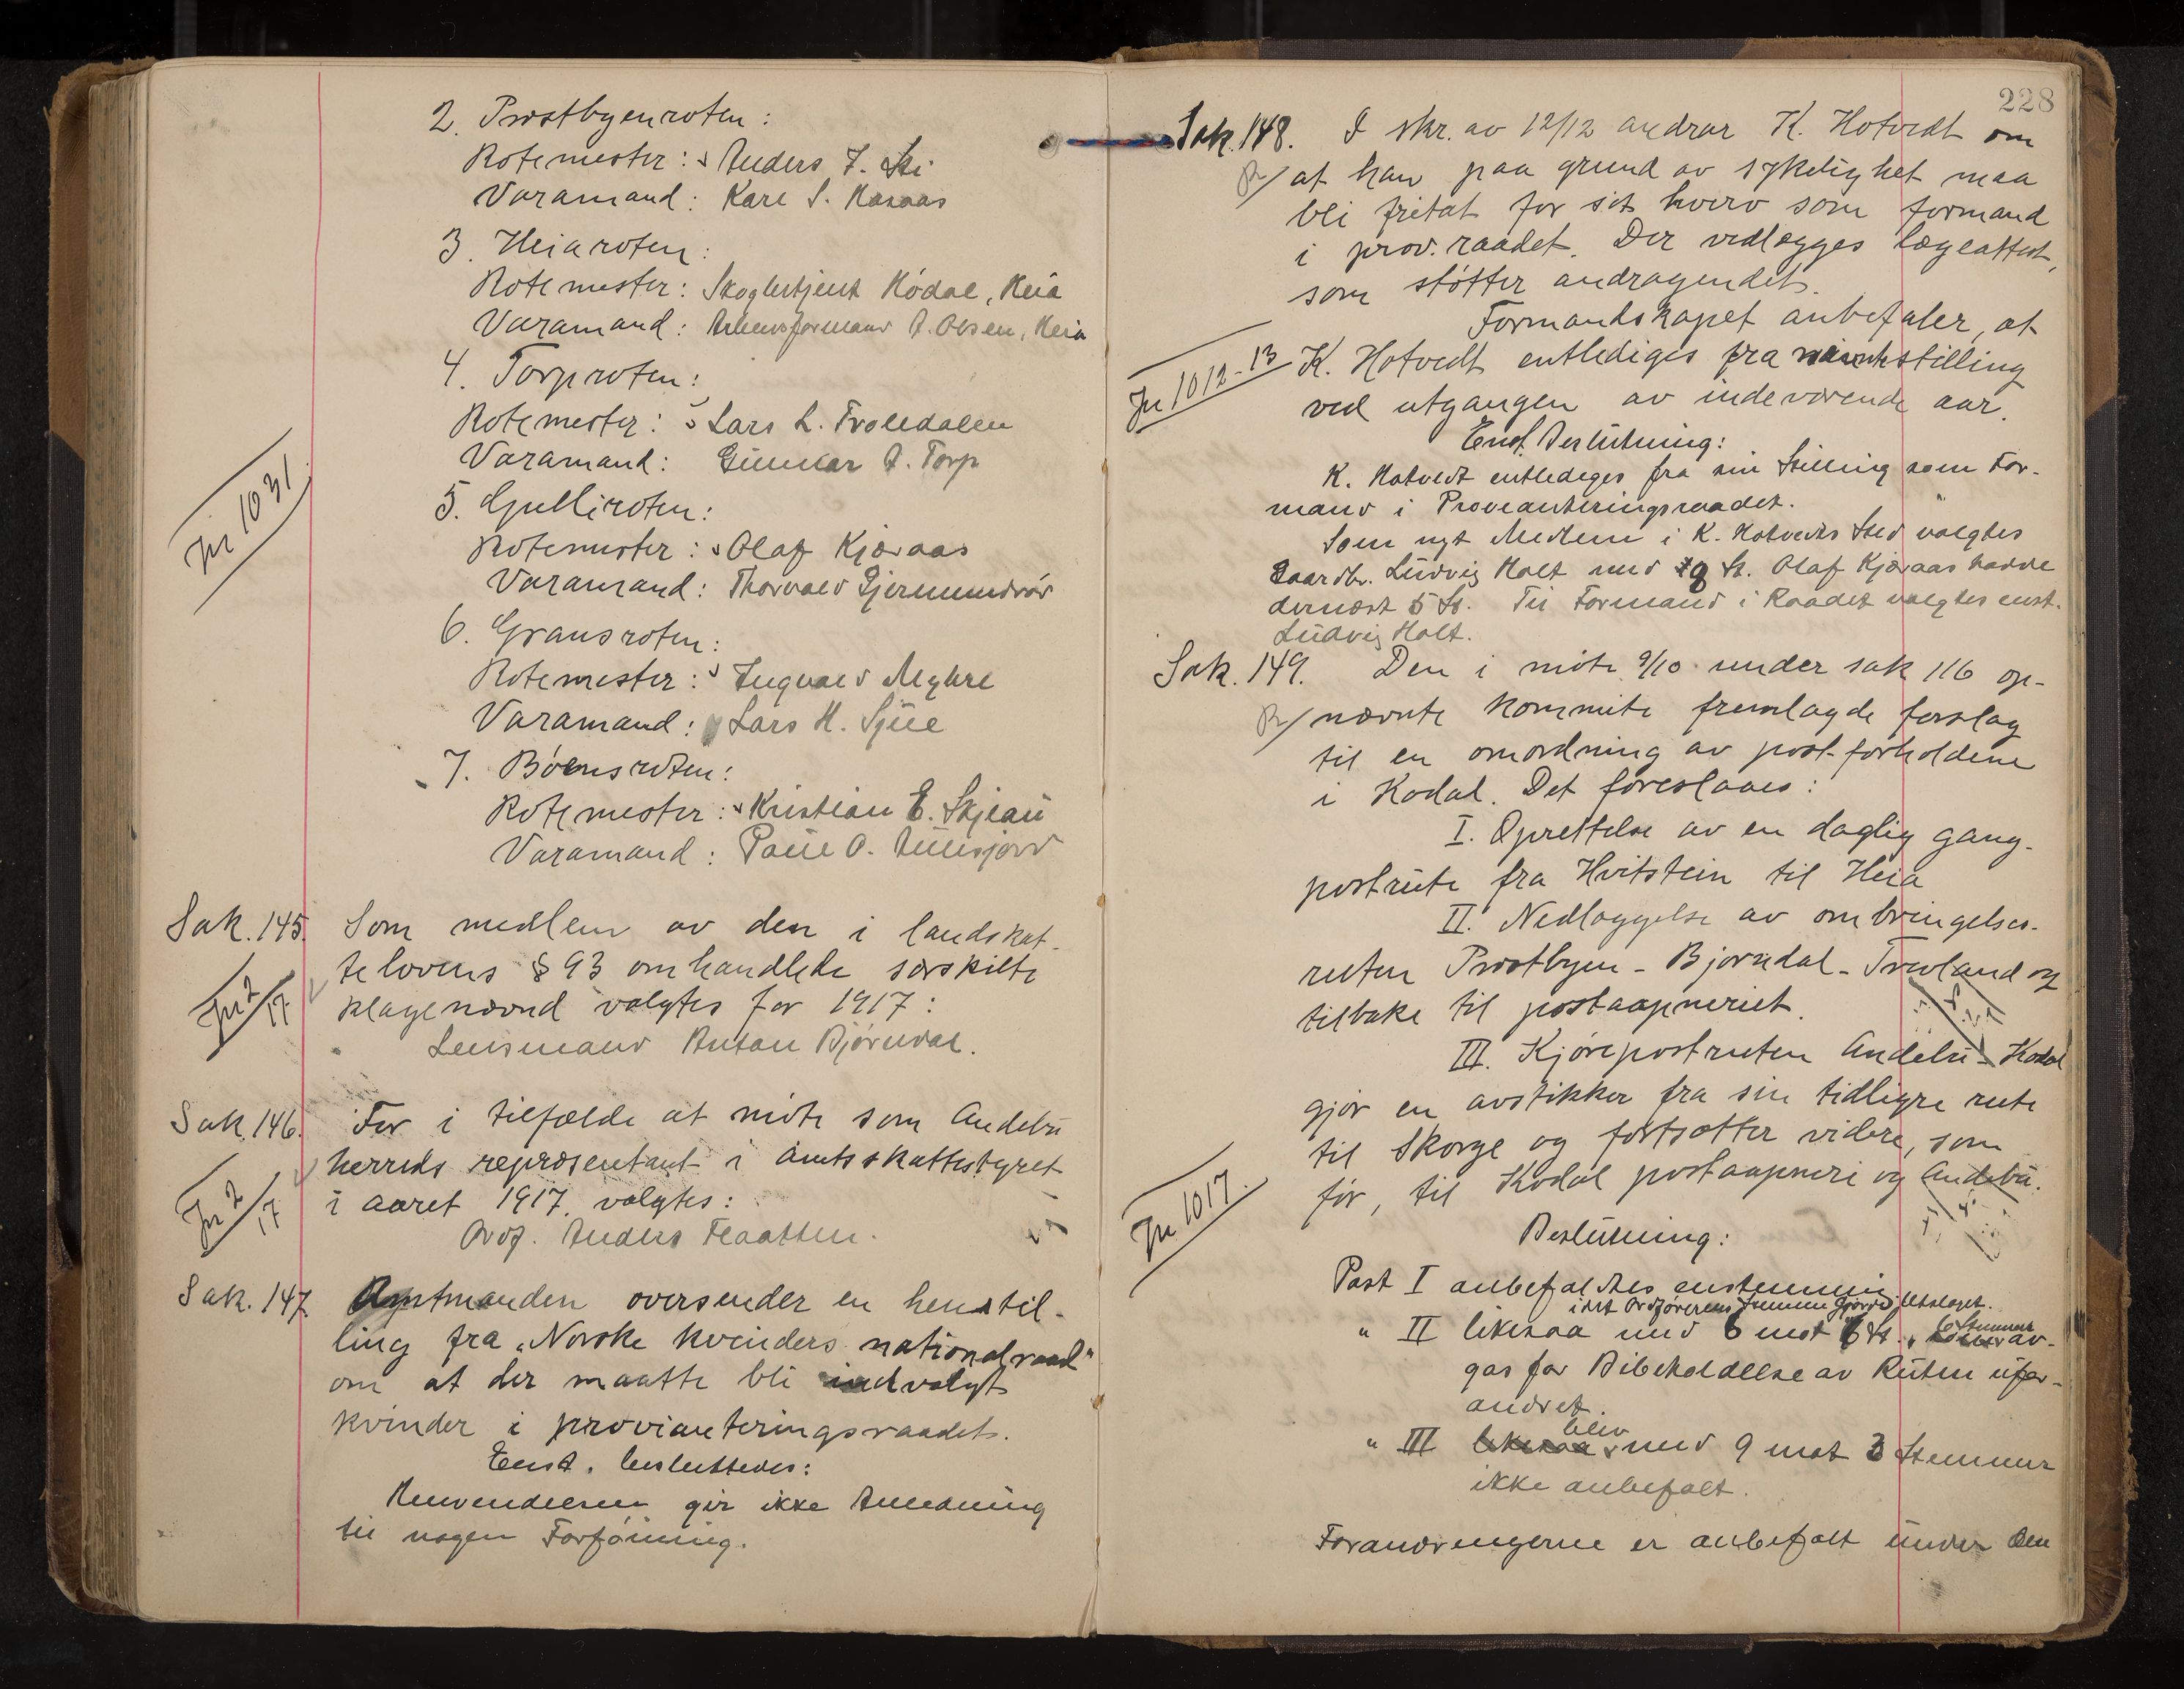 2. Prestbyenroten:
Rotemester: Anders J. Ski
Varamand: Karl S. Kasaas
3. Heiaroten:
Rotemester: Skogbetjent Kodal, Heia
Varamand: Arbeidsformand A. Olsen, Heia
4. Torproten:
Rotemester: Lars L. Trolldalen
Varamand: Gunnar A. Torp
Jn 1031
5. Gulliroten:
Rotemester: Olaf Kjæraas
Varamand: Thorvald Gjermundrød
6. Gransroten:
Rotemester: Ingvald Myhre
Varamand: Lars H. Sjue
7. Bøensroten:
Rotemester: Kristian E. Skjeau
Varamand: Paul O.
Sak. 145. Som medlem av den i landskat-
telovens § 93 omhandlede særskilte
Jn 2/17 klagenævnd valgtes for 1917:
Lensmand Anton Bjørndal.
Sak. 146. For i tilfælde at møte som Andebu
herreds repræsentant i amtsskattestyret
Jn 2/17 i aaret 1917 valgtes:
Ordf. Anders Flaatten.
Sak. 147 Amtmanden oversender en henstil-
ling fra „Norske kvinders nationalraad"
om at der maatte bli indvalgt
kvinder i provianteringsraadet.
Enst. besluttedes:
Henvendelsen gir ikke Anledning
til nogen Forføining.
228
Sak. 148. I skr. av 12/12 andrar K. Hotvedt om
at han paa grund av sykelighet maa
bli fritat for sit hverv som formand
i prov.raadet. Der vedlægges lægeattest,
som støtter andragendet.
Formandskapet anbefaler, at
Jn 1012-13 K. Hotvedt entlediges fra stilling
ved utgangen av indeværende aar.
Enst. Beslutning:
K. Hotvedt entlediges fra sin Stilling som For-
mand i Provianteringsraadet.
Som nyt Medlem i K. Hotvedts Sted valgtes
Gaardbr. Ludvig Holt med 9 St. Olaf Kjæraas hadde
dernæst 5 St. Til Formand i Raadet valgtes enst.
Ludvig Holt.
Sak. 149. Den i møte 9/10 under sak 116 op-
nævnte kommite fremlagde forslag
til en omordning av post-forholdene
i Kodal. Det foreslaaes:
I. Oprettelse av en daglig gang-
postrute fra Hvitstein til Heia
II. Nedlæggelse av ombringelses-
ruten Prestbyen - Bjørndal - Trevland og
tilbake til postaapneriet.
III. Kjørepostruten Andebu - Kodal
gjør en avstikker fra sin tidligre rute
til Skorge og fortsætter videre, som
før, til Kodal postaapneri og Andebu.
Jn 1017.
Beslutning:
Post I anbefaldtes enstemmig
idet Ordførerens Stemme gjorde Utslaget.
" II likesaa med 6 mot 6 St. 6 Stemmer av-
gas for Bibeholdelse av Ruten ufor-
andret.
" III likesaa blev med 9 mot 3 Stemmer
ikke anbefalt.
Forandringerne er anbefalt under den